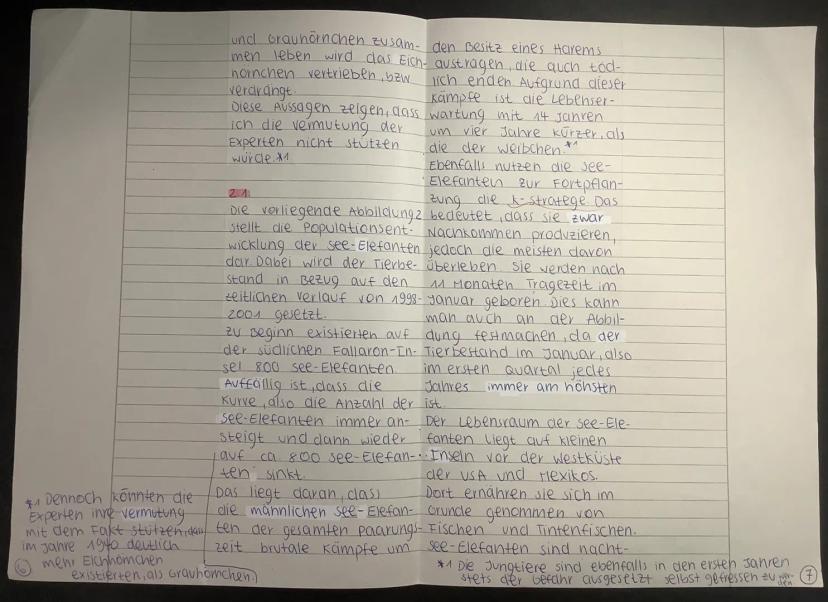 und Grauhörnchen zusam-
men leben wird das Eich-
hörnchen vertrieben, bzw
verdrängt.
Diese Aussagen zeigen, dass
ich die Vermutung der
Experten nicht stützen
würde.*1
2.1
Die vorliegende Abbildung 2
stellt die Populationsent-
wicklung der See-Elefanten
dar. Dabei wird der Tierbe-
stand in Bezug auf den
zeitlichen Verlauf von 1998-
2001 gesetzt.
Zu Beginn existierten auf
der südlichen Fallaron-In-
sel 800 See-Elefanten.
Auffällig ist, dass die
Kurve, also die Anzahl der
See-Elefanten immer an-
steigt und dann wieder
auf ca. 800 See-Elefan-
ten sinkt.
Das liegt daran, dass
die männlichen See-Elefan-
ten der gesamten Paarungs-
zeit brutale Kämpfe um
*1 Dennoch könnten die
Experten ihre Vermutung
mit dem Fakt stützen, dass
im Jahre 1940 deutlich
mehr Eichhörnchen
existierten, als Grauhörnchen.
6
den Besitz eines Harems
austragen, die auch töd-
lich enden. Aufgrund dieser
Kämpfe ist die Lebenser-
wartung mit 14 Jahren
um vier Jahre kürzer, als
die der Weibchen.*1
Ebenfalls nutzen die See-
Elefanten zur Fortpflan-
zung die K-Stratege. Das
bedeutet, dass sie zwar
Nachkommen produzieren,
jedoch die meisten davon
überleben. Sie werden nach
11 Monaten Tragezeit im
Januar geboren. Dies kann
man auch an der Abbil-
dung festmachen, da der
Tierbestand im Januar, also
im ersten Quartal jedes
Jahres immer am höhsten
ist.
Der Lebensraum der See-Ele-
fanten liegt auf kleinen
Inseln vor der Westküste
der USA und Mexikos.
Dort ernähren sie sich im
Grunde genommen von
Fischen und Tintenfischen.
See-Elefanten sind nacht-
*1 Die Jungtiere sind ebenfalls in den ersten Jahren
stets der Gefahr ausgesetzt selbst gefressen zu
7